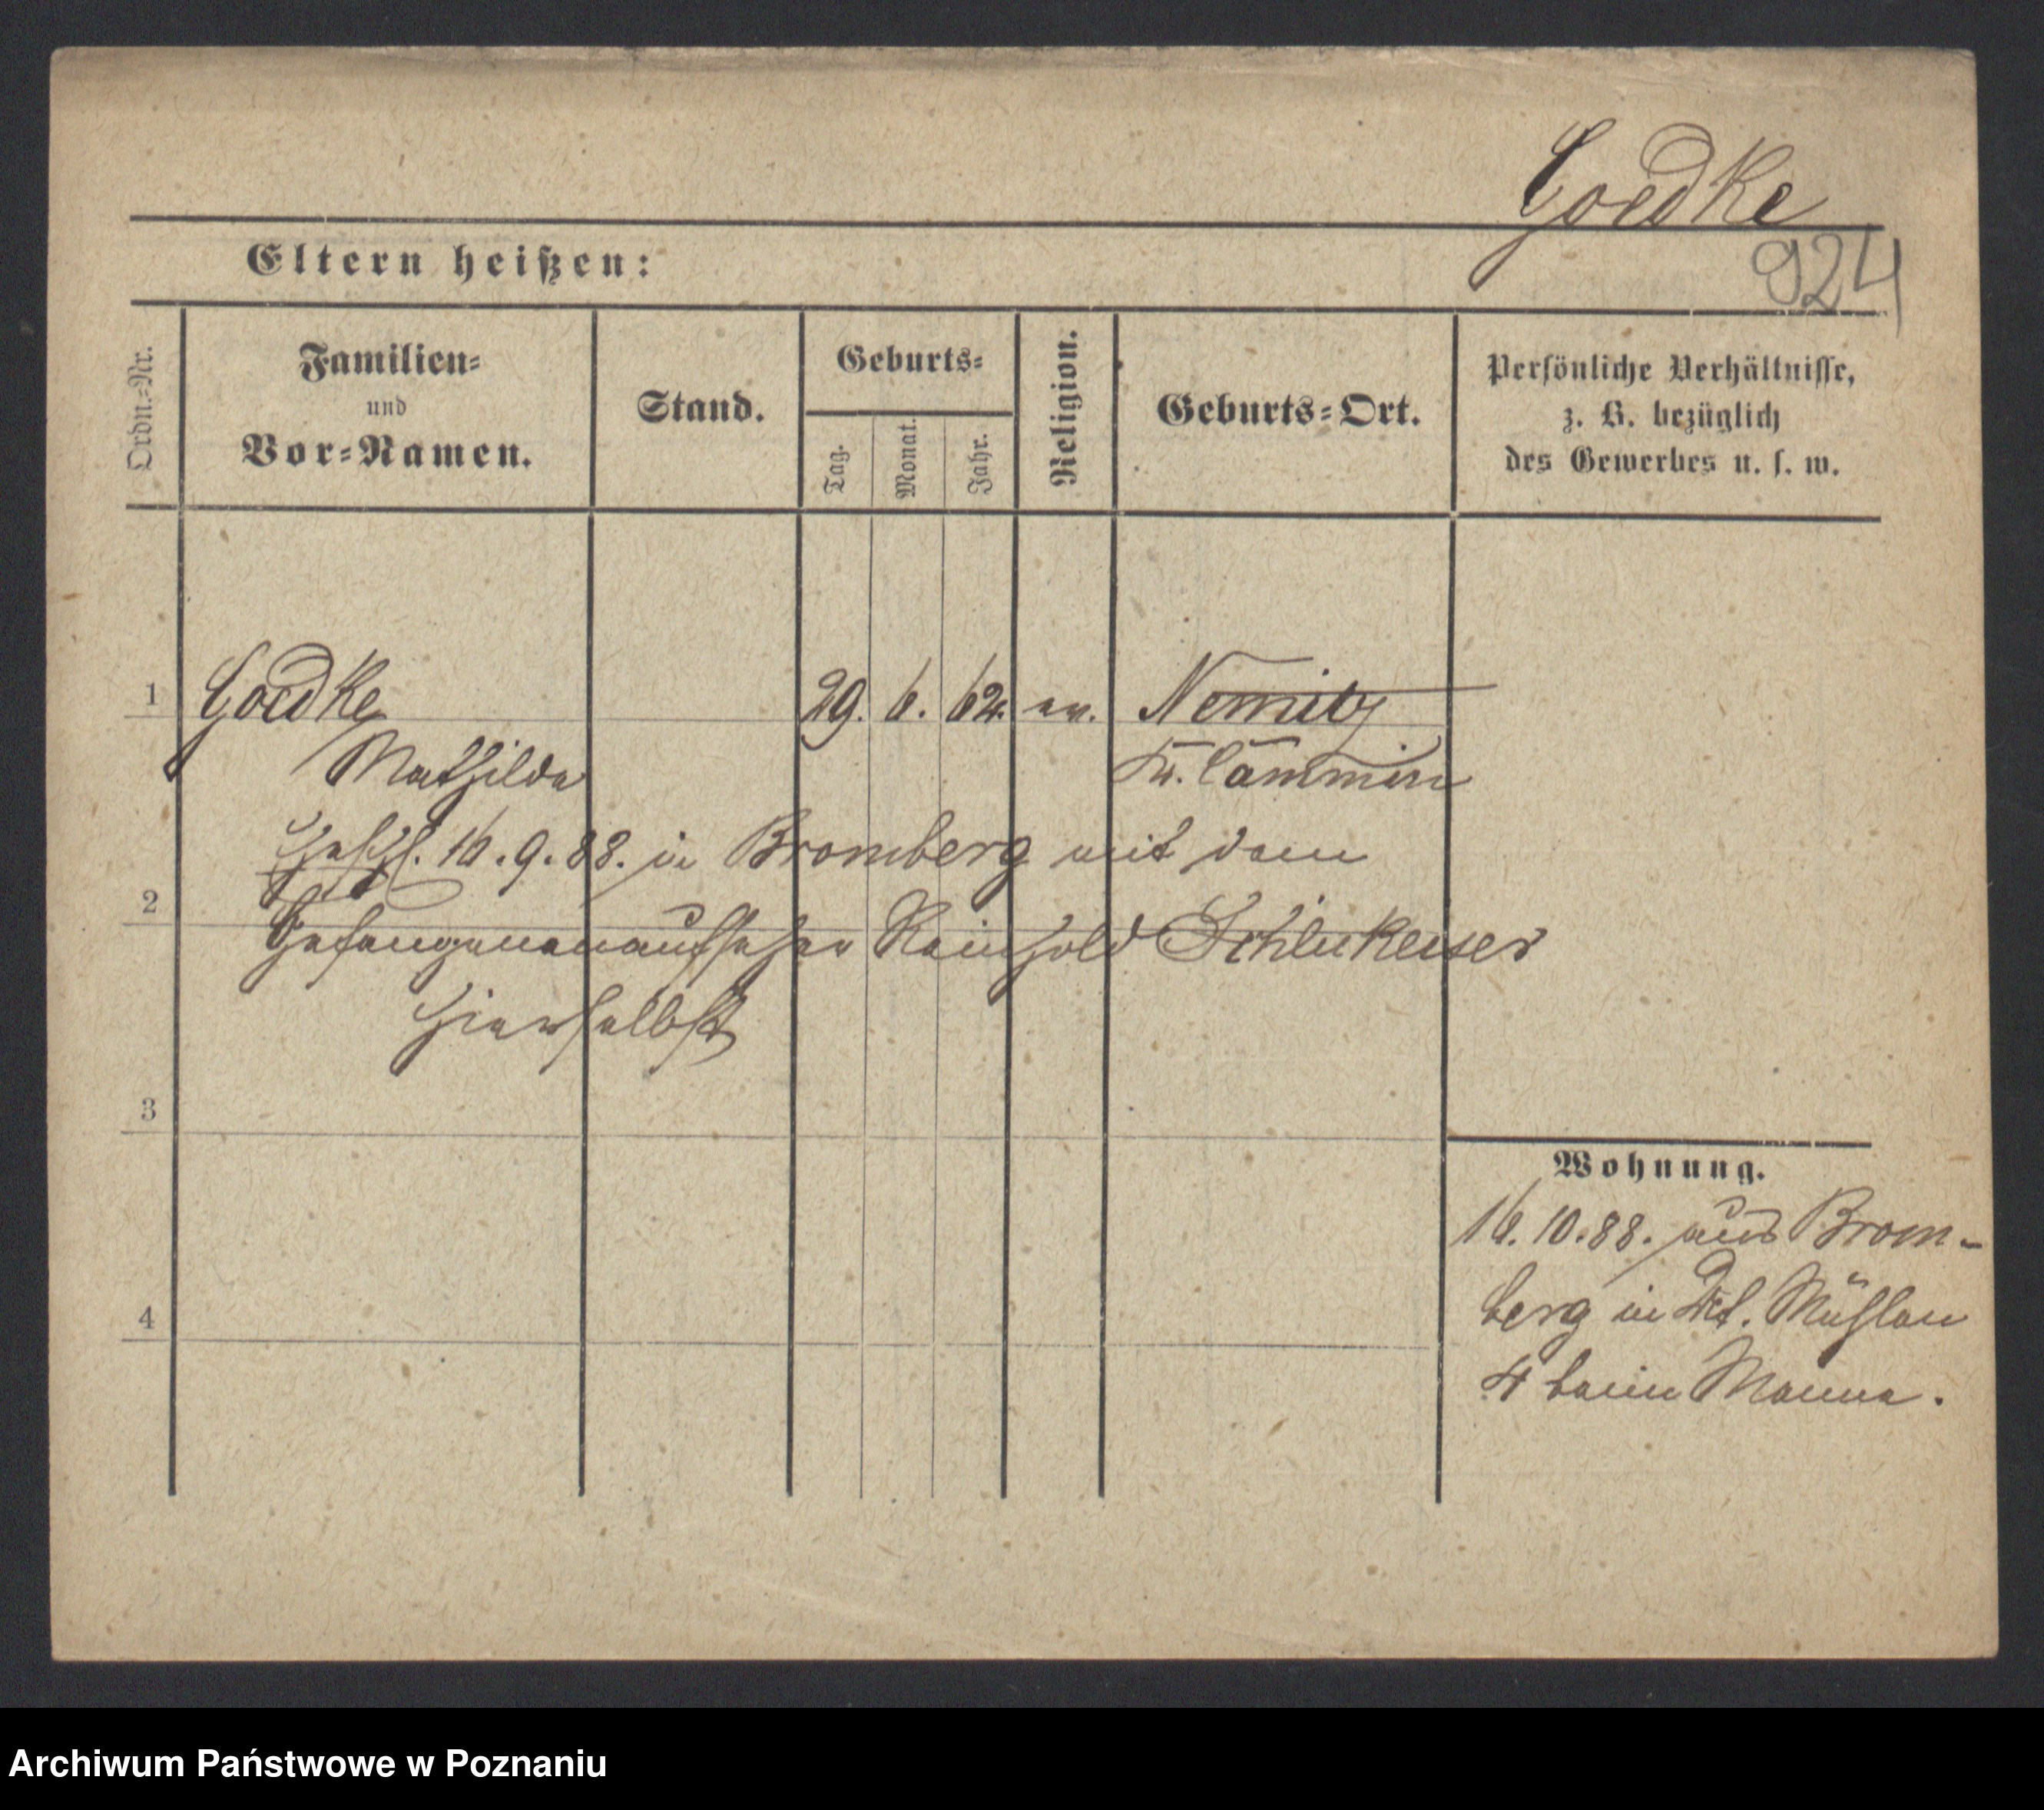 Goedke
924
Eltern heißen:
Ordn.-Nr.
Familien-
und
Vor-Namen.
Stand.
Geburts-
Tag.
Monat.
Jahr.
Religion.
Geburts-Ort.
Persönliche Verhältnisse,
z. B. bezüglich
des Gewerbes u. s. w.
1 Goedke 29. 6. 62. ev. Nemitz
Mathilde Kr. Cammin
16.9.88. in Bromberg mit dem
2
Gefangenenaufseher Reinhold Schleukeuser
hierselbst
3
Wohnung.
16.10.88. aus Brom-
berg in Mühlen
4
4 beim Manne.
Archiwum Państwowe w Poznaniu